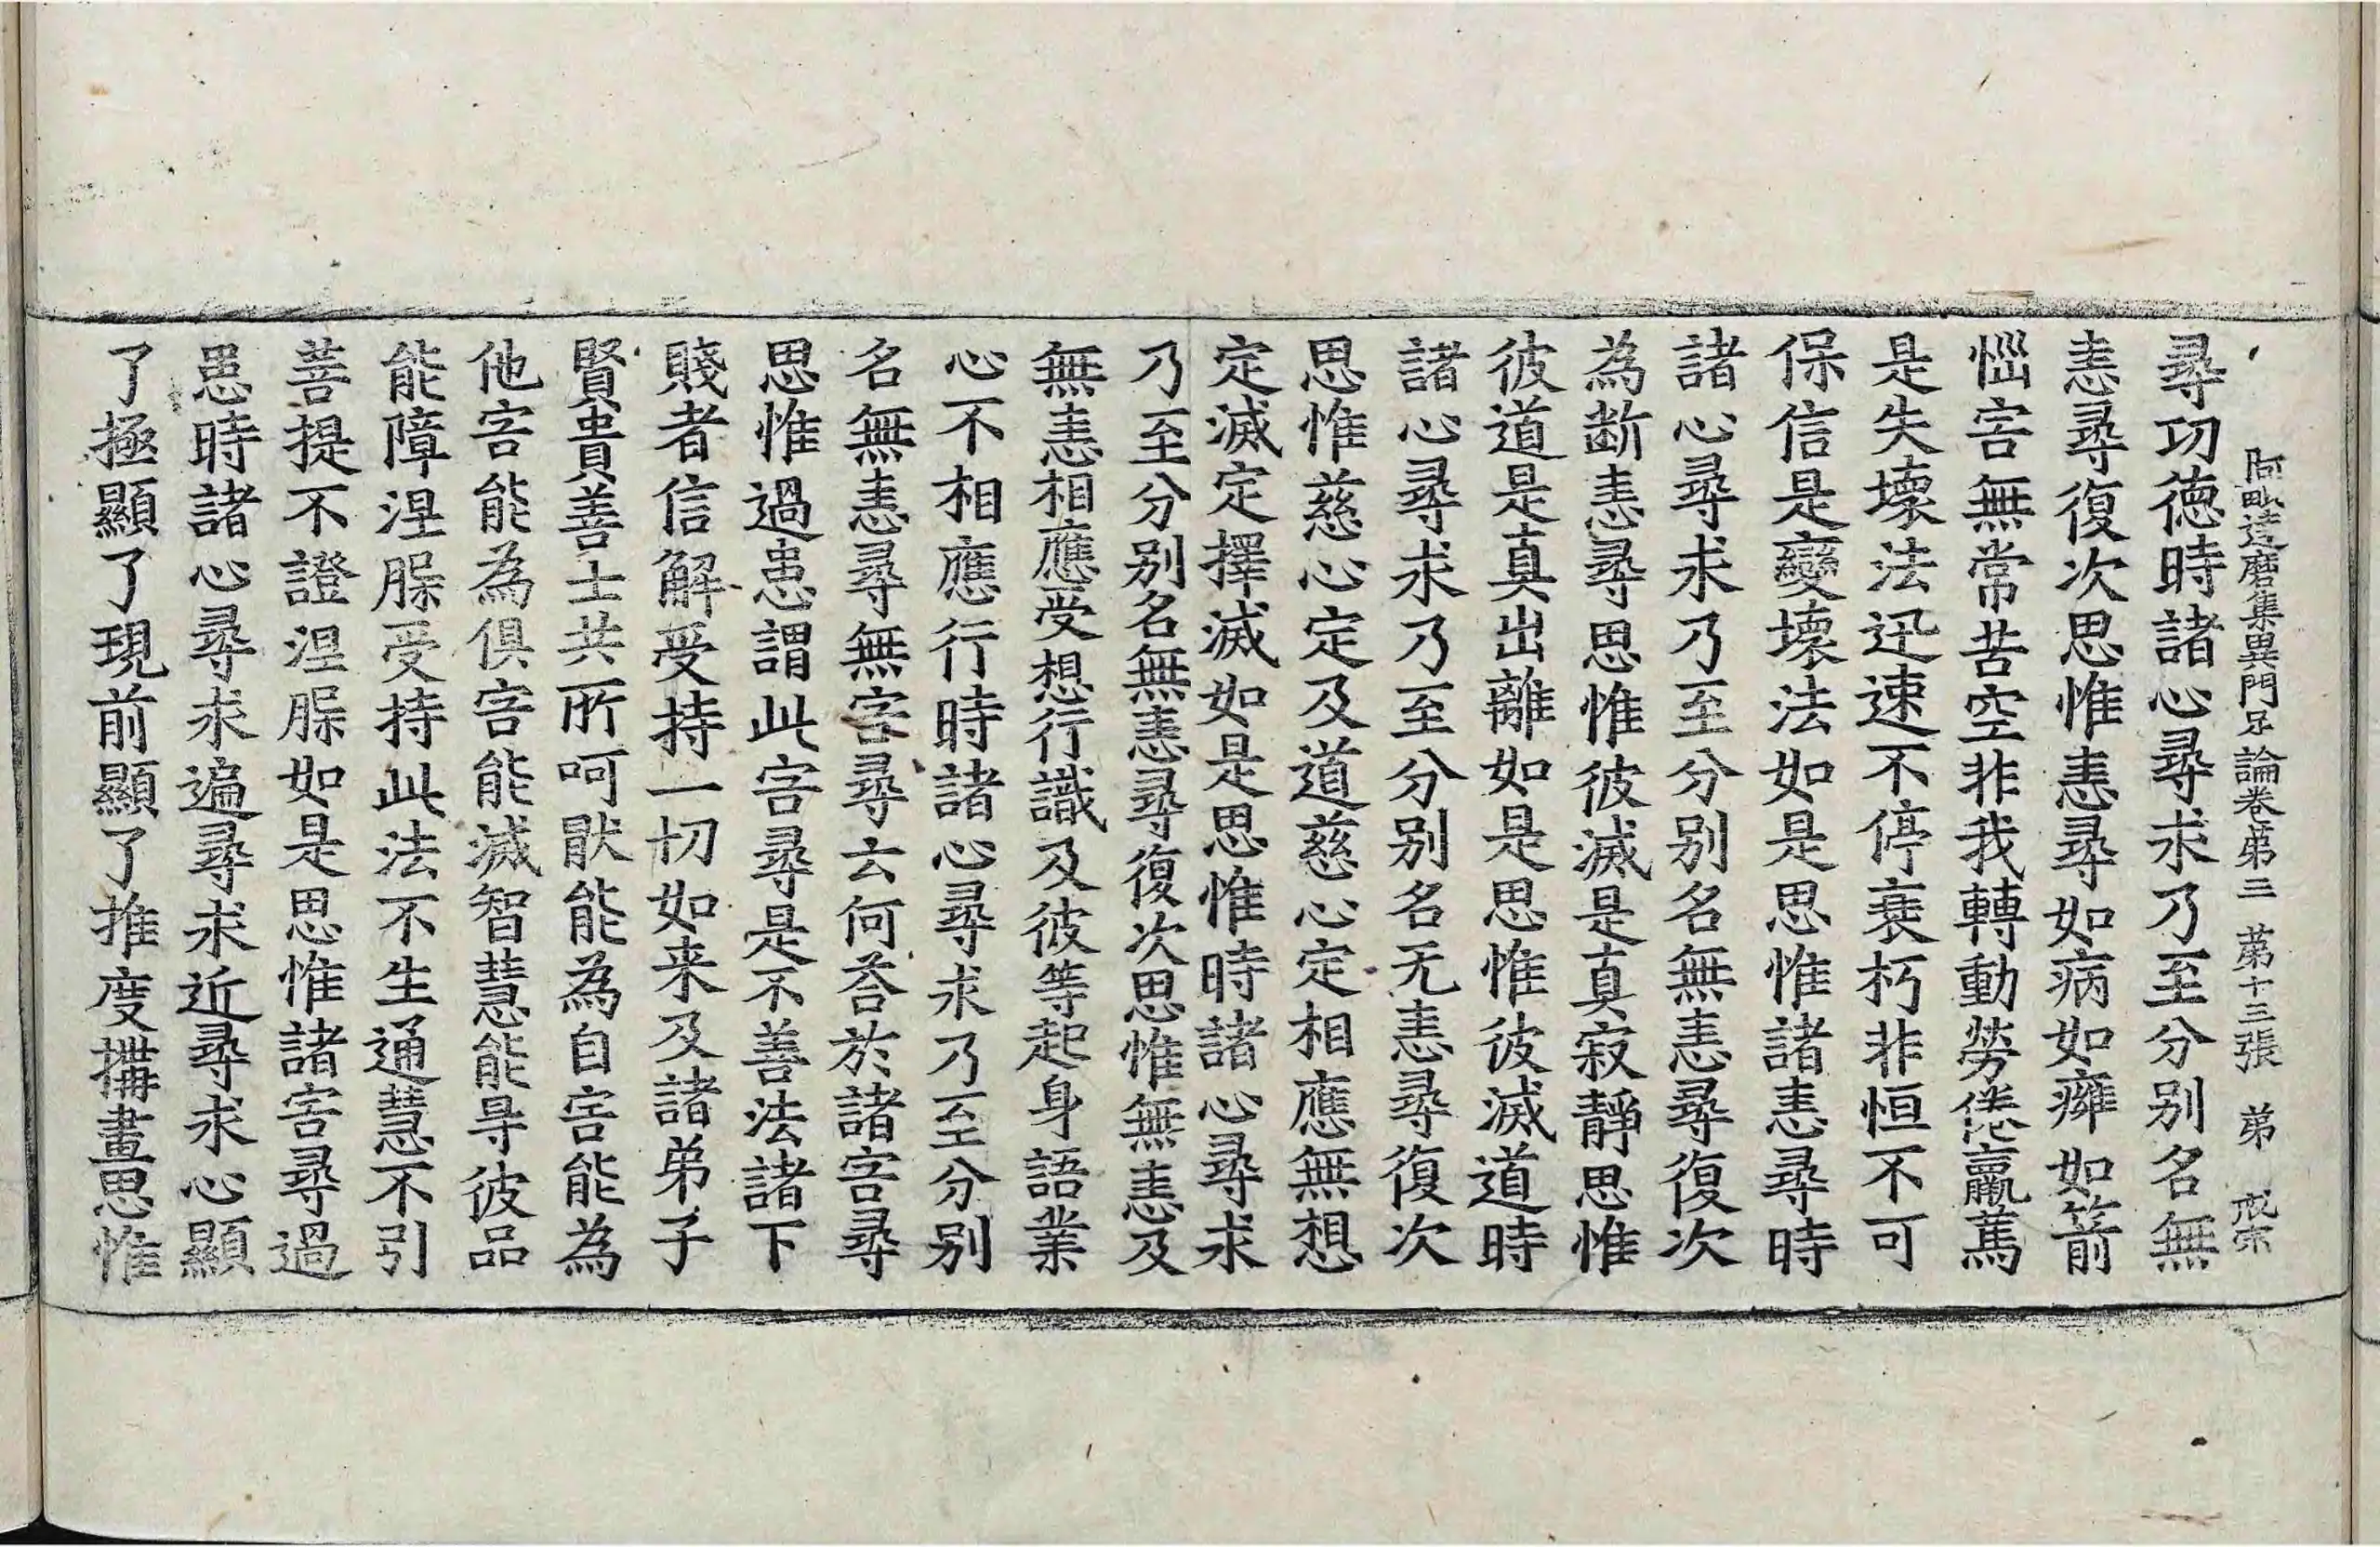 阿毗達磨集異門足論卷第三　第十三張　弟
尋功德時諸心尋求乃至分别名無
恚尋復次思惟恚尋如病如癰如箭
惱害無常苦空非我轉動勞倦羸篤
是失壞法迅速不停衰朽非恒不可
保信是變壞法如是思惟諸恚尋時
諸心尋求乃至分别名無恚尋復次
為断恚尋思惟彼滅是真寂靜思惟
彼道是真出離如是思惟彼滅道時
諸心尋求乃至分别名无恚尋復次
思惟慈心定及道慈心定相應無想
定滅定擇滅如是思惟時諸心尋求
乃至分别名無恚尋復次思惟無恚及
無恚相應受想行識及彼等起身語業
心不相應行時諸心尋求乃至分别
名無恚尋無害尋云何荅於諸害尋
思惟過患謂此害尋是不善法諸下
賤者信解受持一切如来及諸弟子
賢貴善士共所呵猒能為自害能為
他害能為俱害能滅智慧能㝵彼品
能障涅脲受持此法不生通慧不引
菩提不證涅脲如是思惟諸害尋過
患時諸心尋求遍尋求近尋求心顯
了極顯了現前顯了推度搆畫思惟